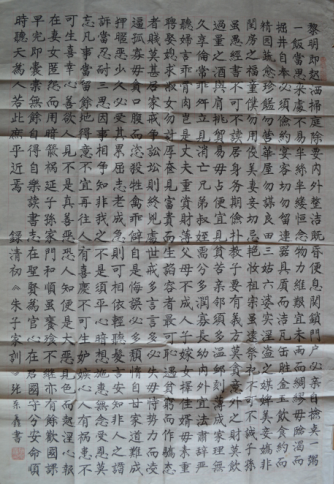 黎明即起洒掃庭除要内外整洁既昏便息關鎖門户必亲自檢点一粥
一飯當思來處不易半絲半縷恒念物力維艱宜未雨而綢缪毋臨渴而
掘井自奉必須儉約宴客切勿留連器具質而洁瓦缶胜金玉飲食約而
精園蔬愈珍饈勿營華屋勿謀良田三姑六婆实淫盗之媒婢美妾嬌非
閨房之福童僕勿用俊美妻妾切忌艳妝祖宗雖遠祭祀不可不誠子孫
雖愚經書不可不讀居身務期儉朴教子要有義方莫貪意外之財莫飲
過量之酒與肩挑貿易毋占便宜見貧苦亲鄰須加温恤刻薄成家理無
久享倫常乖舛立見消亡兄弟叔姪需分多潤寡長幼内外宜法肅辞严
聽婦言乖骨肉豈是丈夫重資財薄父母不成人子嫁女擇佳婿毋索重
聘娶媳求淑女勿計厚奩見富貴而生諂容者最可恥遇貧窮而作驕態
者賤莫甚居家戒爭訟訟則終凶處世戒多言言多必失毋恃势力而凌
逼孤寡毋貪口腹而恣殺牲禽乖僻自是悔誤必多頹惰自甘家道難成
狎暱惡少久必受其累屈志老成急則可相依輕聽發言安知非人之譖
訴當忍耐三思因事相爭知非我之不是須平心暗想施惠無念受恩莫
忘凡事當留餘地得意不宜再往人有喜慶不可生妒嫉心人有禍患不
可生喜幸心善欲人見不是真善惡恐人知便是大惡見色而起淫心報
在妻女匿怨而用暗箭禍延子孫家門和順雖饔飧不繼亦有餘歡國課
早完即囊橐無餘自得至樂讀書志在聖賢為官心在君國守分安命順
時聽天為人若此庶乎近焉 録清初朱子家訓 書